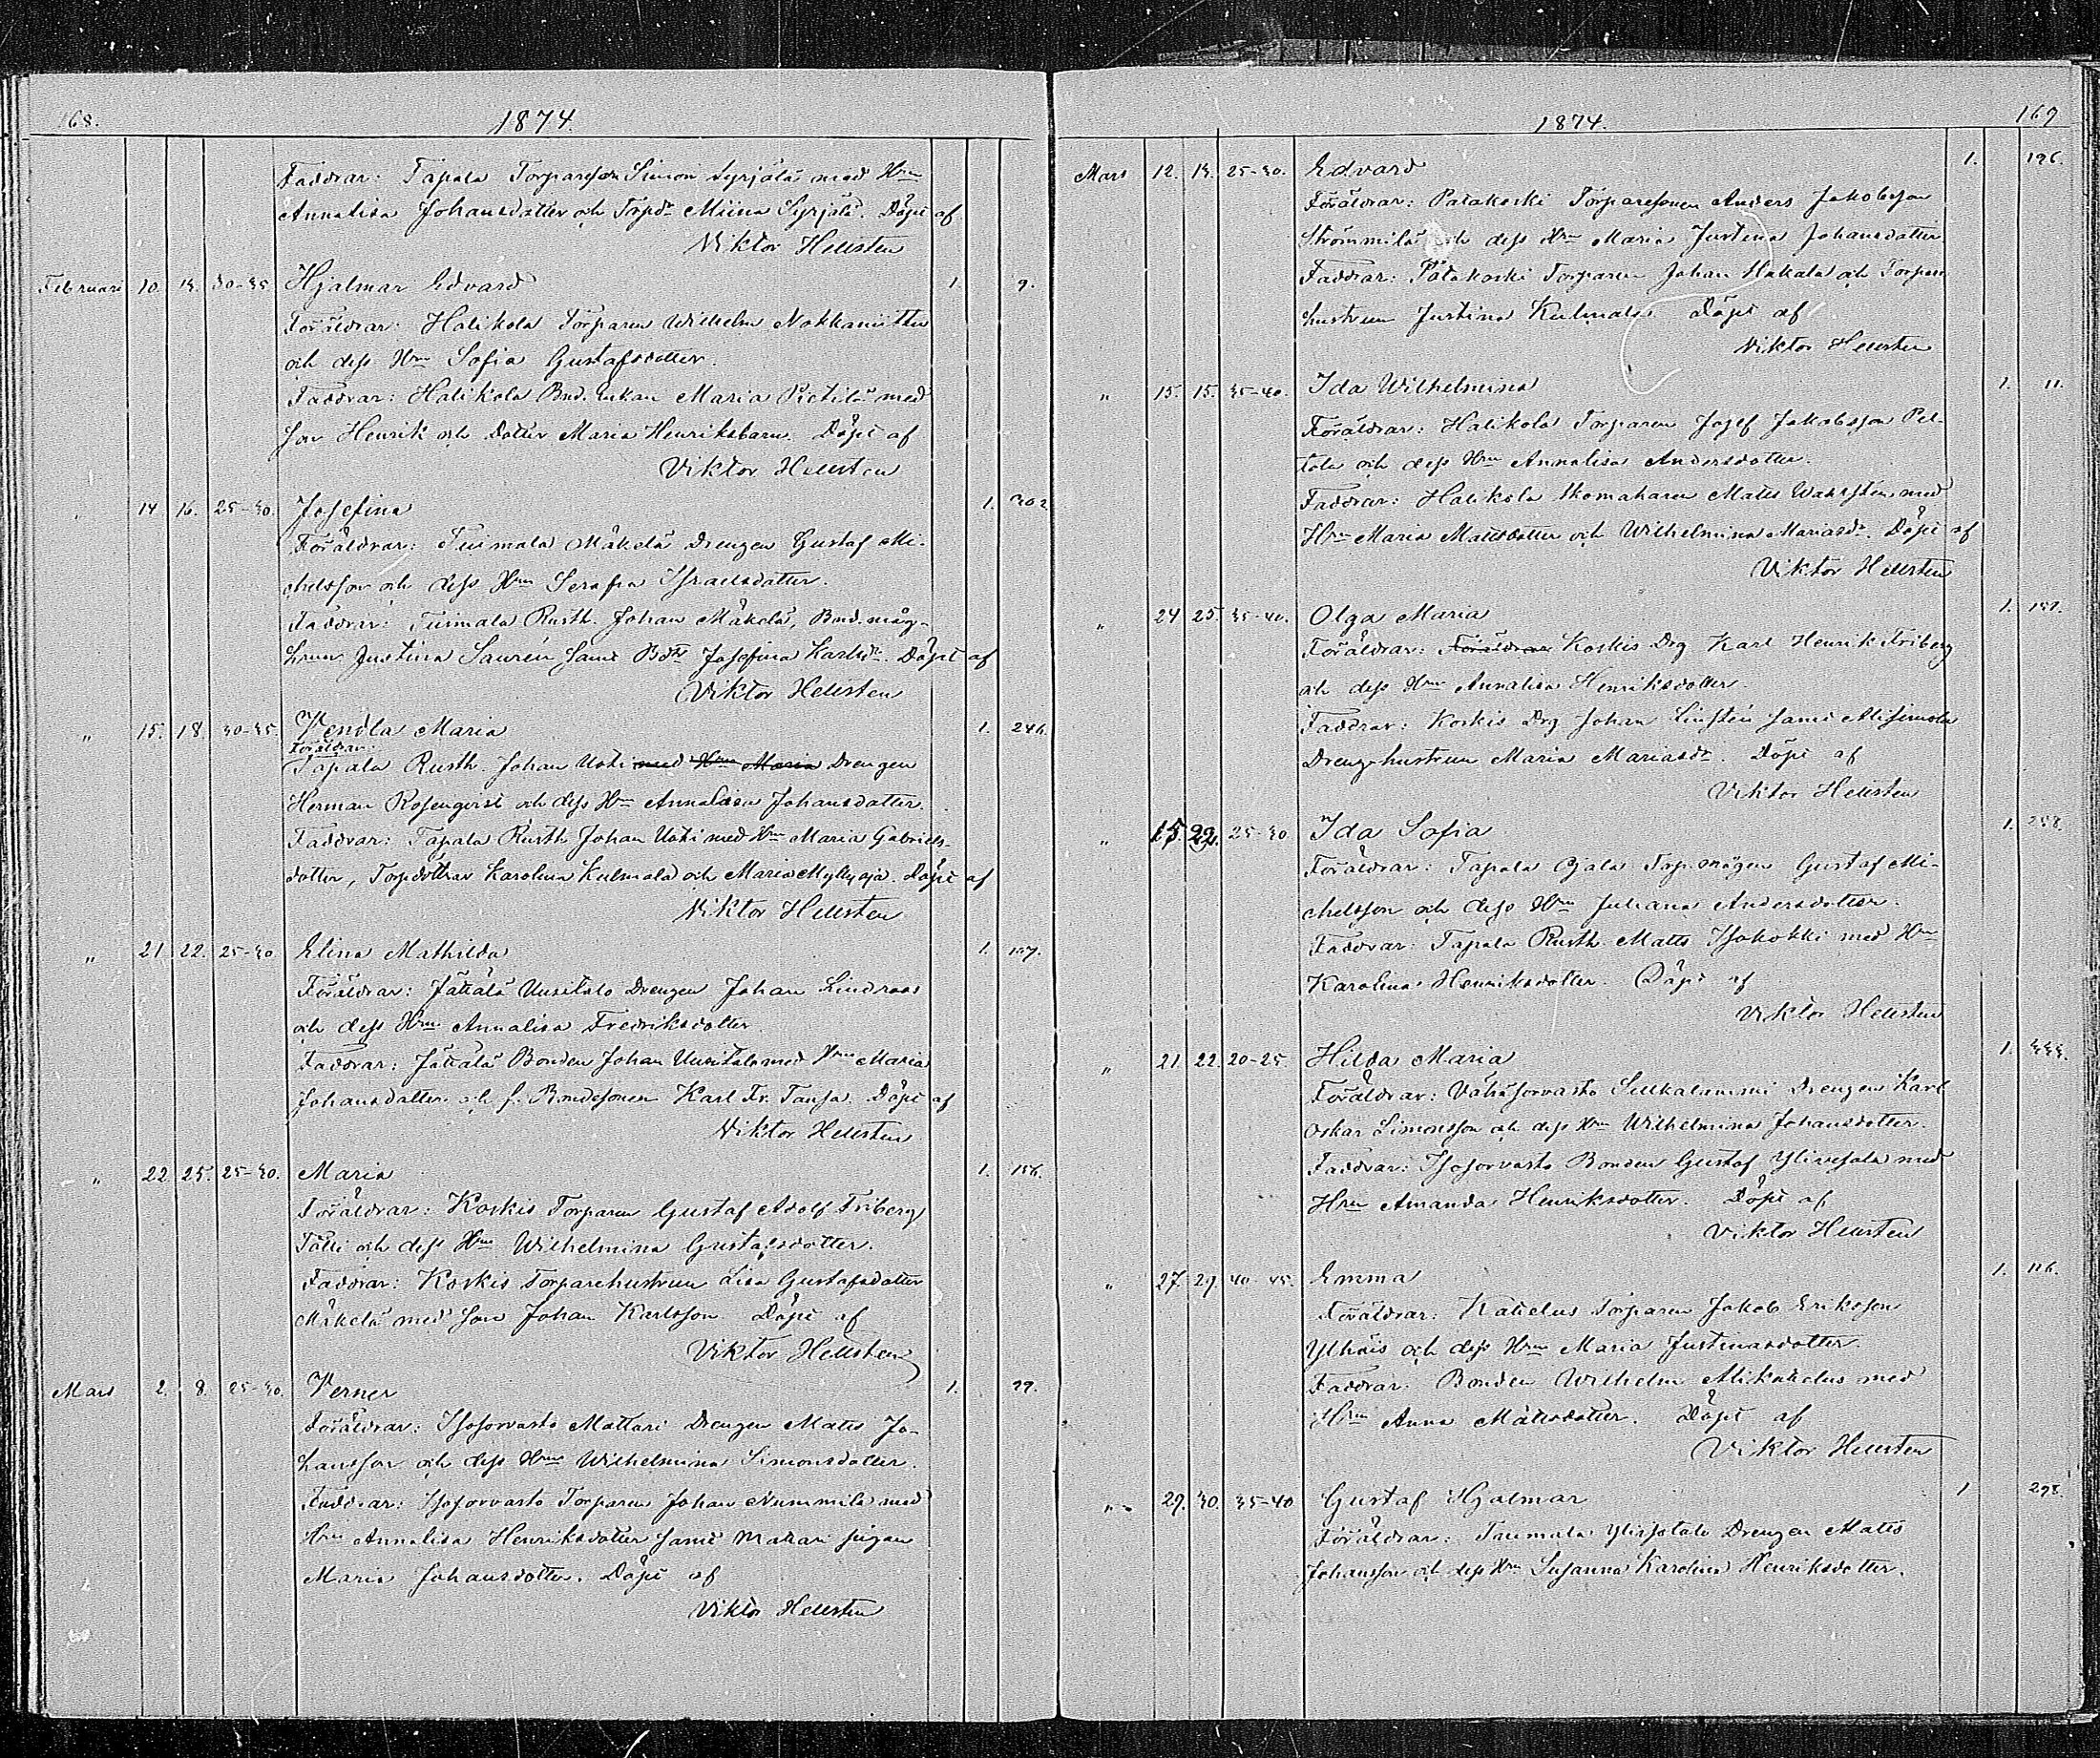 168.
1874.
Faddrar: Tapala Torpareson Simon Syrjälä med Hrn
Annalisa Johansdotter och Torpdr Miina Syrjälä. Döpt af
Viktor Hellsten
Februari 10. 14. 30-35 Hjalmar Edvard 1. 9.
Föräldrar: Halikola Torparen Wilhelm Nokkaniittu
och dess Hru Sofia Gustafsdotter.
Faddrar: Halikola Bnd. Enkan Maria Pietilä med
son Henrik och Dotter Maria Henriksbarn. Döpt af
Viktor Hellsten
14 16. 25-30. Josefina 1. 302
Föräldrar: Tuimala Mäkelä Drengen Gustaf Mi-
chelsson och dess Hru Serafia Israelsdotter.
Faddrar: Tuimala Rusth. Johan Mäkelä, Bnd. måg-
hrun Justina Saurén samt Bdtr Josefina Karlsdr. Döpt af
Viktor Hellsten
" 15. 18. 30-35. Vendla Maria 1. 246.
Föräldrar:
Tapala Rusth. Johan Uoti med Hru Maria Drengen
Herman Rosenqvist och dess Hru Annalisa Johansdotter.
Faddrar: Tapala Rusth Johan Uoti med Hru Maria Gabriels-
dotter, Torpdöttrar Karolina Kulmala och Maria Myllyoja. Döpt af
Viktor Hellsten
" 21. 22. 25-30 Elina Mathilda 1. 107.
Föräldrar: Jättälä Uusitalo Drengen Johan Lindroos
och dess Hru Annalisa Fredriksdotter.
Faddrar: Jättälä Bonden Johan Uusitalo med Hru Maria
Johansdotter och f. Bondesonen Karl Fr. Tansa. Döpt af
Viktor Hellsten
" 22. 25. 25-30. Maria 1. 156.
Föräldrar: Koskis Torparen Gustaf Adolf Friberg
Tölli och dess Hru Wilhelmina Gustafsdotter.
Faddrar: Koskis Torparehustrun Lisa Gustafsdotter
Mäkelä med son Johan Karlsson Döpt af
Viktor Hellsten
Mars 2. 8. 25-30. Verner 1. 99.
Föräldrar: Isosorvasto Mattari Drengen Matts Jo-
hansson och dess Hru Wilhelmina Simonsdotter.
Faddrar: Isosorvasto Torparen Johan Nummila med
Hru Annalisa Henriksdotter samt Mattari pigan
Maria Johansdotter. Döpt af
Viktor Hellsten
169
1874.
Mars 12. 14. 25-30. Edvard 1. 196.
Föräldrar: Patakoski Torparesonen Anders Jakobsson
Strömmilä och dess Hru Maria Justina Johansdotter
Faddrar: Patakoski Torparen Johan Hakala och Torpare
hustrun Justina Kulmala. Döpt af
Viktor Hellsten
" 15. 15. 35-40. Ida Wilhelmina 1. 11.
Föräldrar: Halikola Torparen Josef Jakobsson Pel-
tola och dess Hru Annalisa Andersdotter.
Faddrar: Halikola Skomakaren Matts Wahlsten med
Hru Maria Mattsdotter och Wilhelmina Mariasdr. Döpt af
Viktor Hellsten
" 24 25. 35-40. Olga Maria 1. 157.
Föräldrar: Föräldrar Koskis Drg Karl Henrik Friberg
och dess Hru Annalisa Henriksdotter
Faddrar: Koskis Drg Johan Linstén samt Alisimola
Drengehustrun Maria Mariasdr. Döpt af
Viktor Hellsten
" 15. 22. 25-30 Ida Sofia 1. 258.
Föräldrar: Tapala Ojala Torpmågen Gustaf Mi-
chelsson och dess Hru Juliana Andersdotter.
Faddrar: Tapala Rusth Matts Isokokki med Hru
Karolina Henriksdotter. Döpt af
Viktor Hellsten
" 21. 22. 20-25 Hilda Maria 1. 333.
Föräldrar: Vähäsorvasto Sulkalammi Drengen Karl
Oskar Simonsson och dess Hru Wilhelmina Johansdotter.
Faddrar: Isosorvasto Bonden Gustaf Ylivesola med
Hru Amanda Henriksdotter. Döpt af
Viktor Hellsten
" 27. 29. 40-45. Emma 1. 116.
Föräldrar: Katielus Torparen Jakob Eriksson
Ylhäis och dess Hru Maria Justinasdotter.
Faddrar: Bonden Wilhelm Alikatielus med
Hru Anna Mattsdotter. Döpt af
Viktor Hellsten
" 29. 30. 35-40 Gustaf Hjalmar 1 298.
Föräldrar: Tuimala Ylistalo Drengen Matts
Johansson och dess Hru Susanna Karolina Henriksdotter.